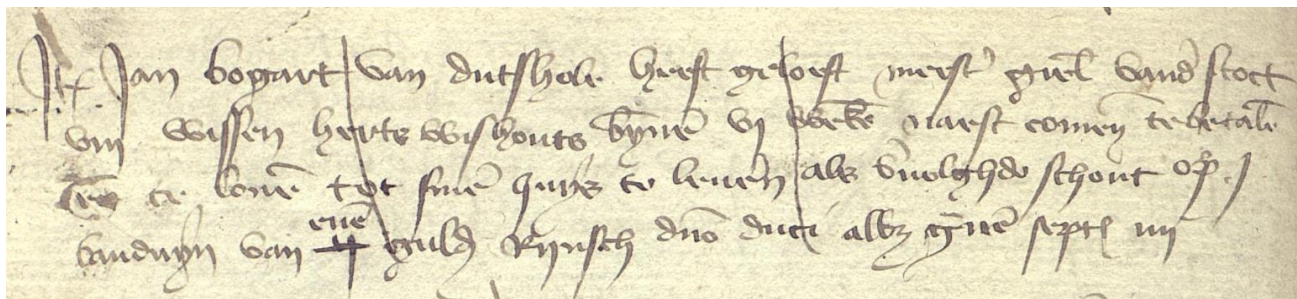 It Jan bogart van dutshole heeft geloeft meest giel vand stoct
viii wissen herts wishouts bynne vj weke naest comen te betale
en te loue tot sine huys te leuen als v'volghde schout op j
van van eene guld Rynsch dno duci als g'ne sept iiii